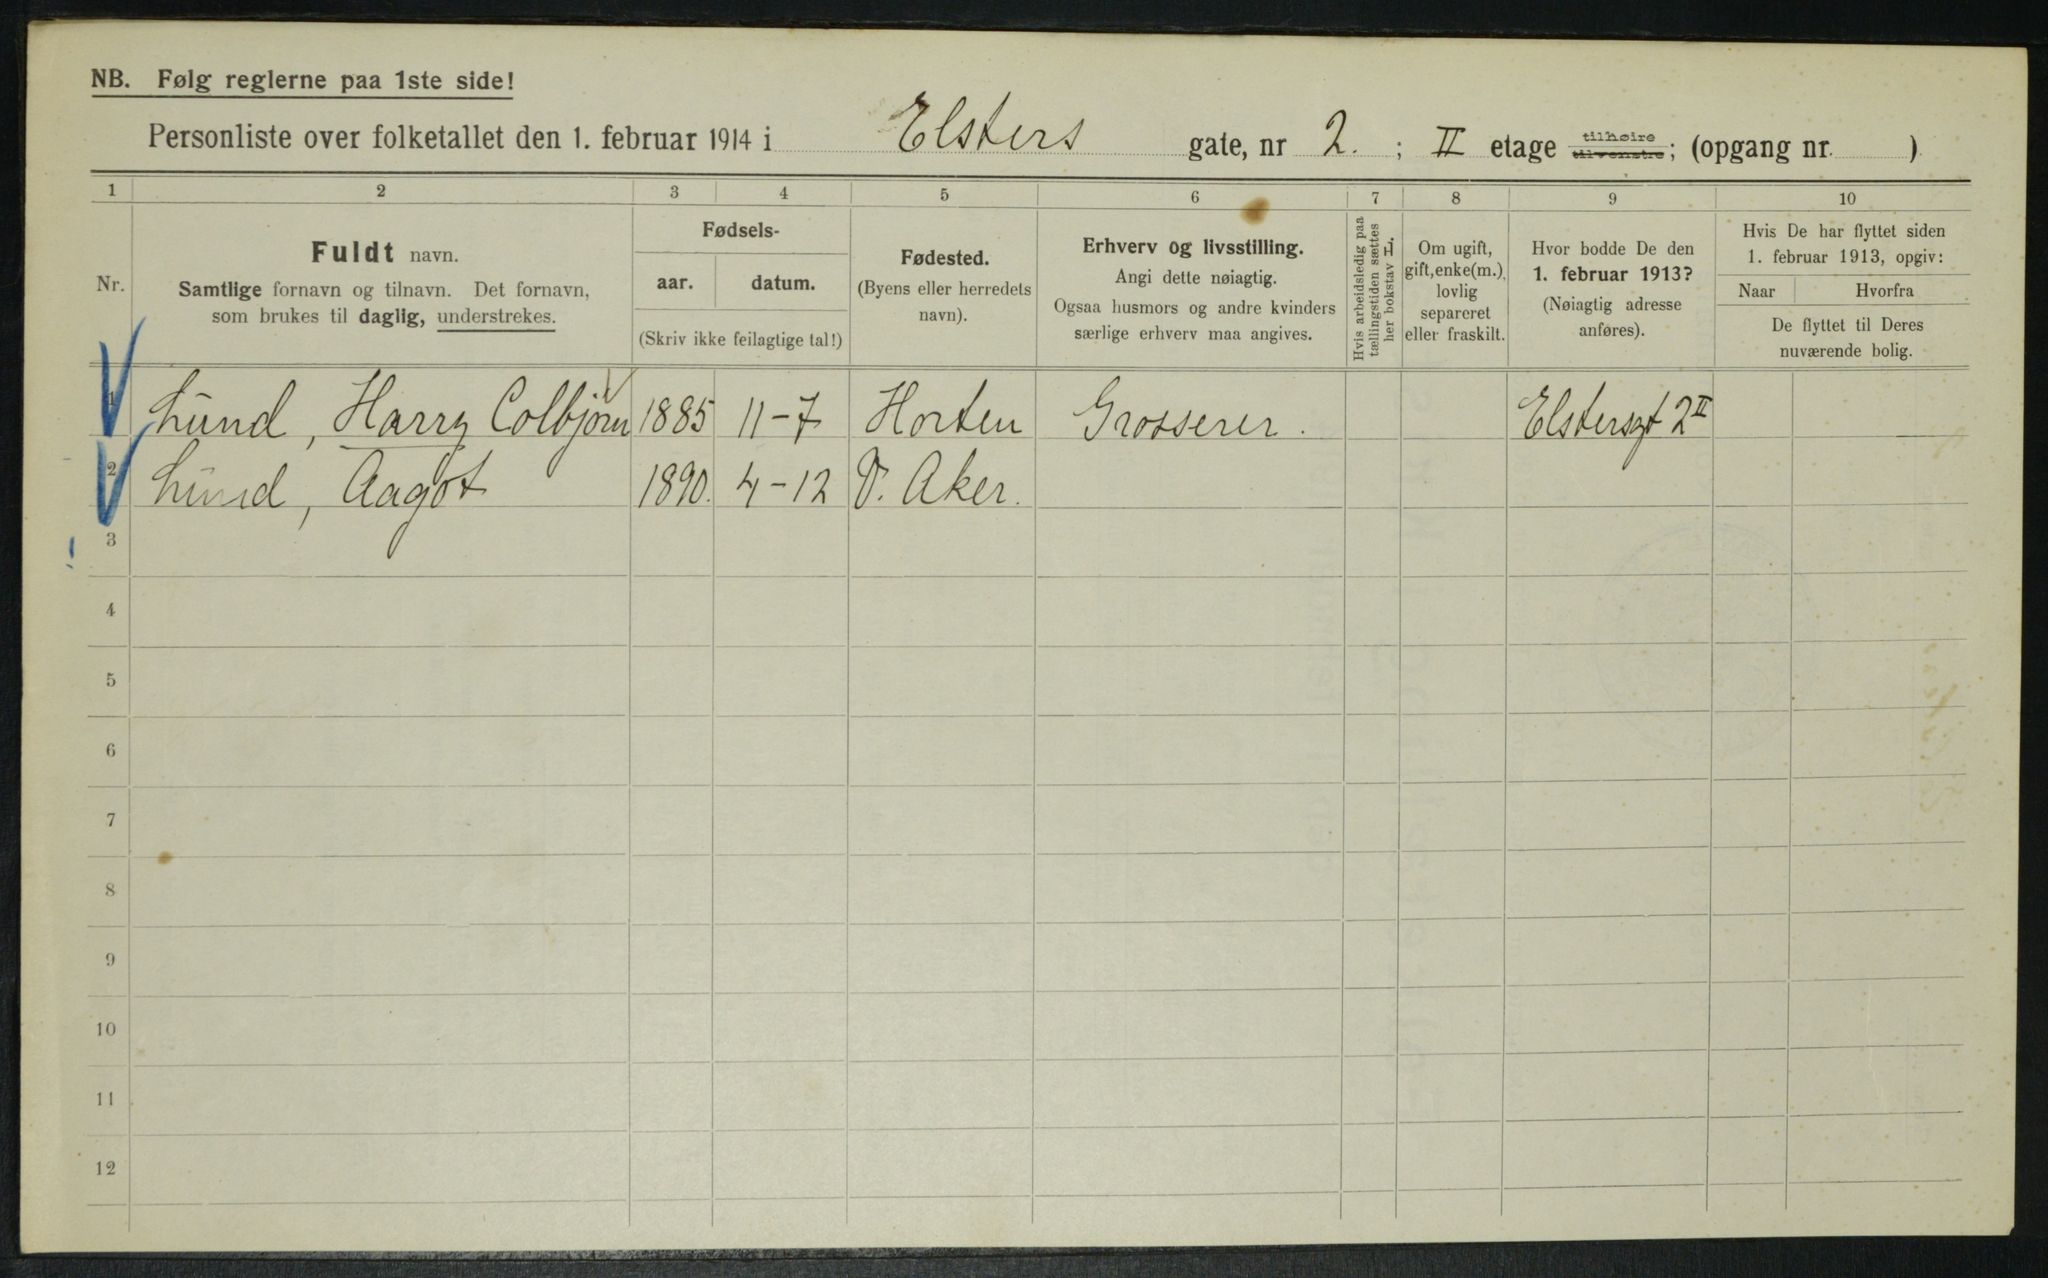 NB. Følg reglerne paa 1ste side!
Personliste over folketallet den 1. februar 1914 i Elsters gate, nr 2. ; II etage tilhøire tilvenstre; (opgang nr. )
1 2 3 4 5 6 7 8 9 10
Nr.
Fuldt navn.
Samtlige fornavn og tilnavn. Det fornavn,
som brukes til daglig, understrekes.
Fødsels-
aar. datum.
(Skriv ikke feilagtige tal!)
Fødested.
(Byens eller herredets
navn).
Erhverv og livsstilling.
Angi dette nøiagtig.
Ogsaa husmors og andre kvinders
særlige erhverv maa angives.
Hvis arbeidsledig paa
tællingstiden sættes
her bokstav L.
Om ugift,
gift, enke(m.),
lovlig
separeret
eller fraskilt.
Hvor bodde De den
1. februar 1913?
(Nøiagtig adresse
anføres).
Hvis De har flyttet siden
1. februar 1913, opgiv:
Naar Hvorfra
De flyttet til Deres
nuværende bolig.
1 Lund, Harry Colbjørn 1885 11-7 Horten Grosserer. Elstersgt 2 II
2 Lund, Aagot 1890. 4-12 V. Aker.
3
4
5
6
7
8
9
10
11
12